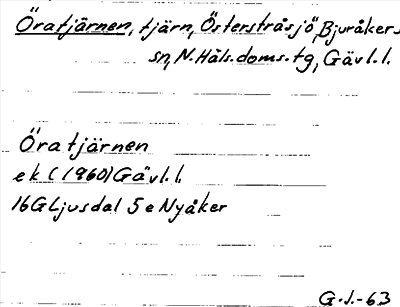 Öratjärnen, tjärn, Österstråsjö, Bjuråkers
sn, N. Häls. doms. tg, Gävl. l.
Öratjärnen
ek (1960) Gävl. l.
16G Ljusdal 5e Nyåker
G.J.-63